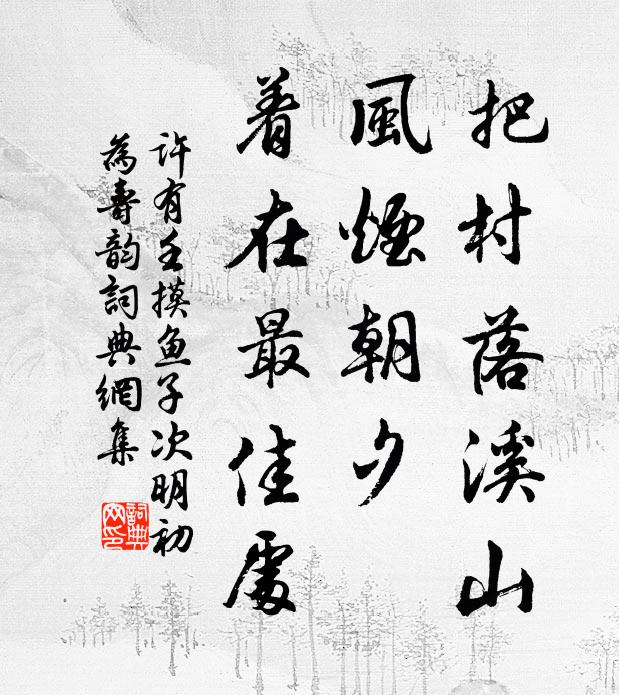 把村落溪山
風煙朝夕
着在最佳處
许有壬摸鱼子次明初
為壽韵詞典網集
詞典網印